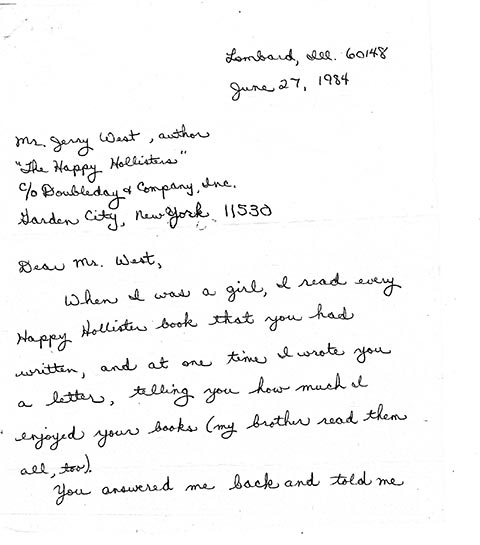 Lombard, Ill. 60148
June 27, 1984
Mr. Jerry West, author
"The Happy Hollisters"
c/o Doubleday & Company, Inc.
Garden City, New York 11530
Dear Mr. West,
When I was a girl, I read every
Happy Hollister book that you had
written, and at one time I wrote you
a letter, telling you how much I
enjoyed your books (my brother read them
all, too).
You answered me back and told me